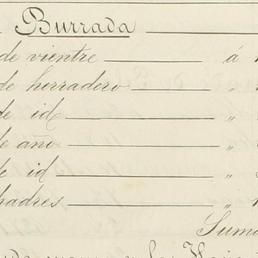 Burrada
de vientre á
de herradero "
de id "
de año "
de id "
hadres "
Suma